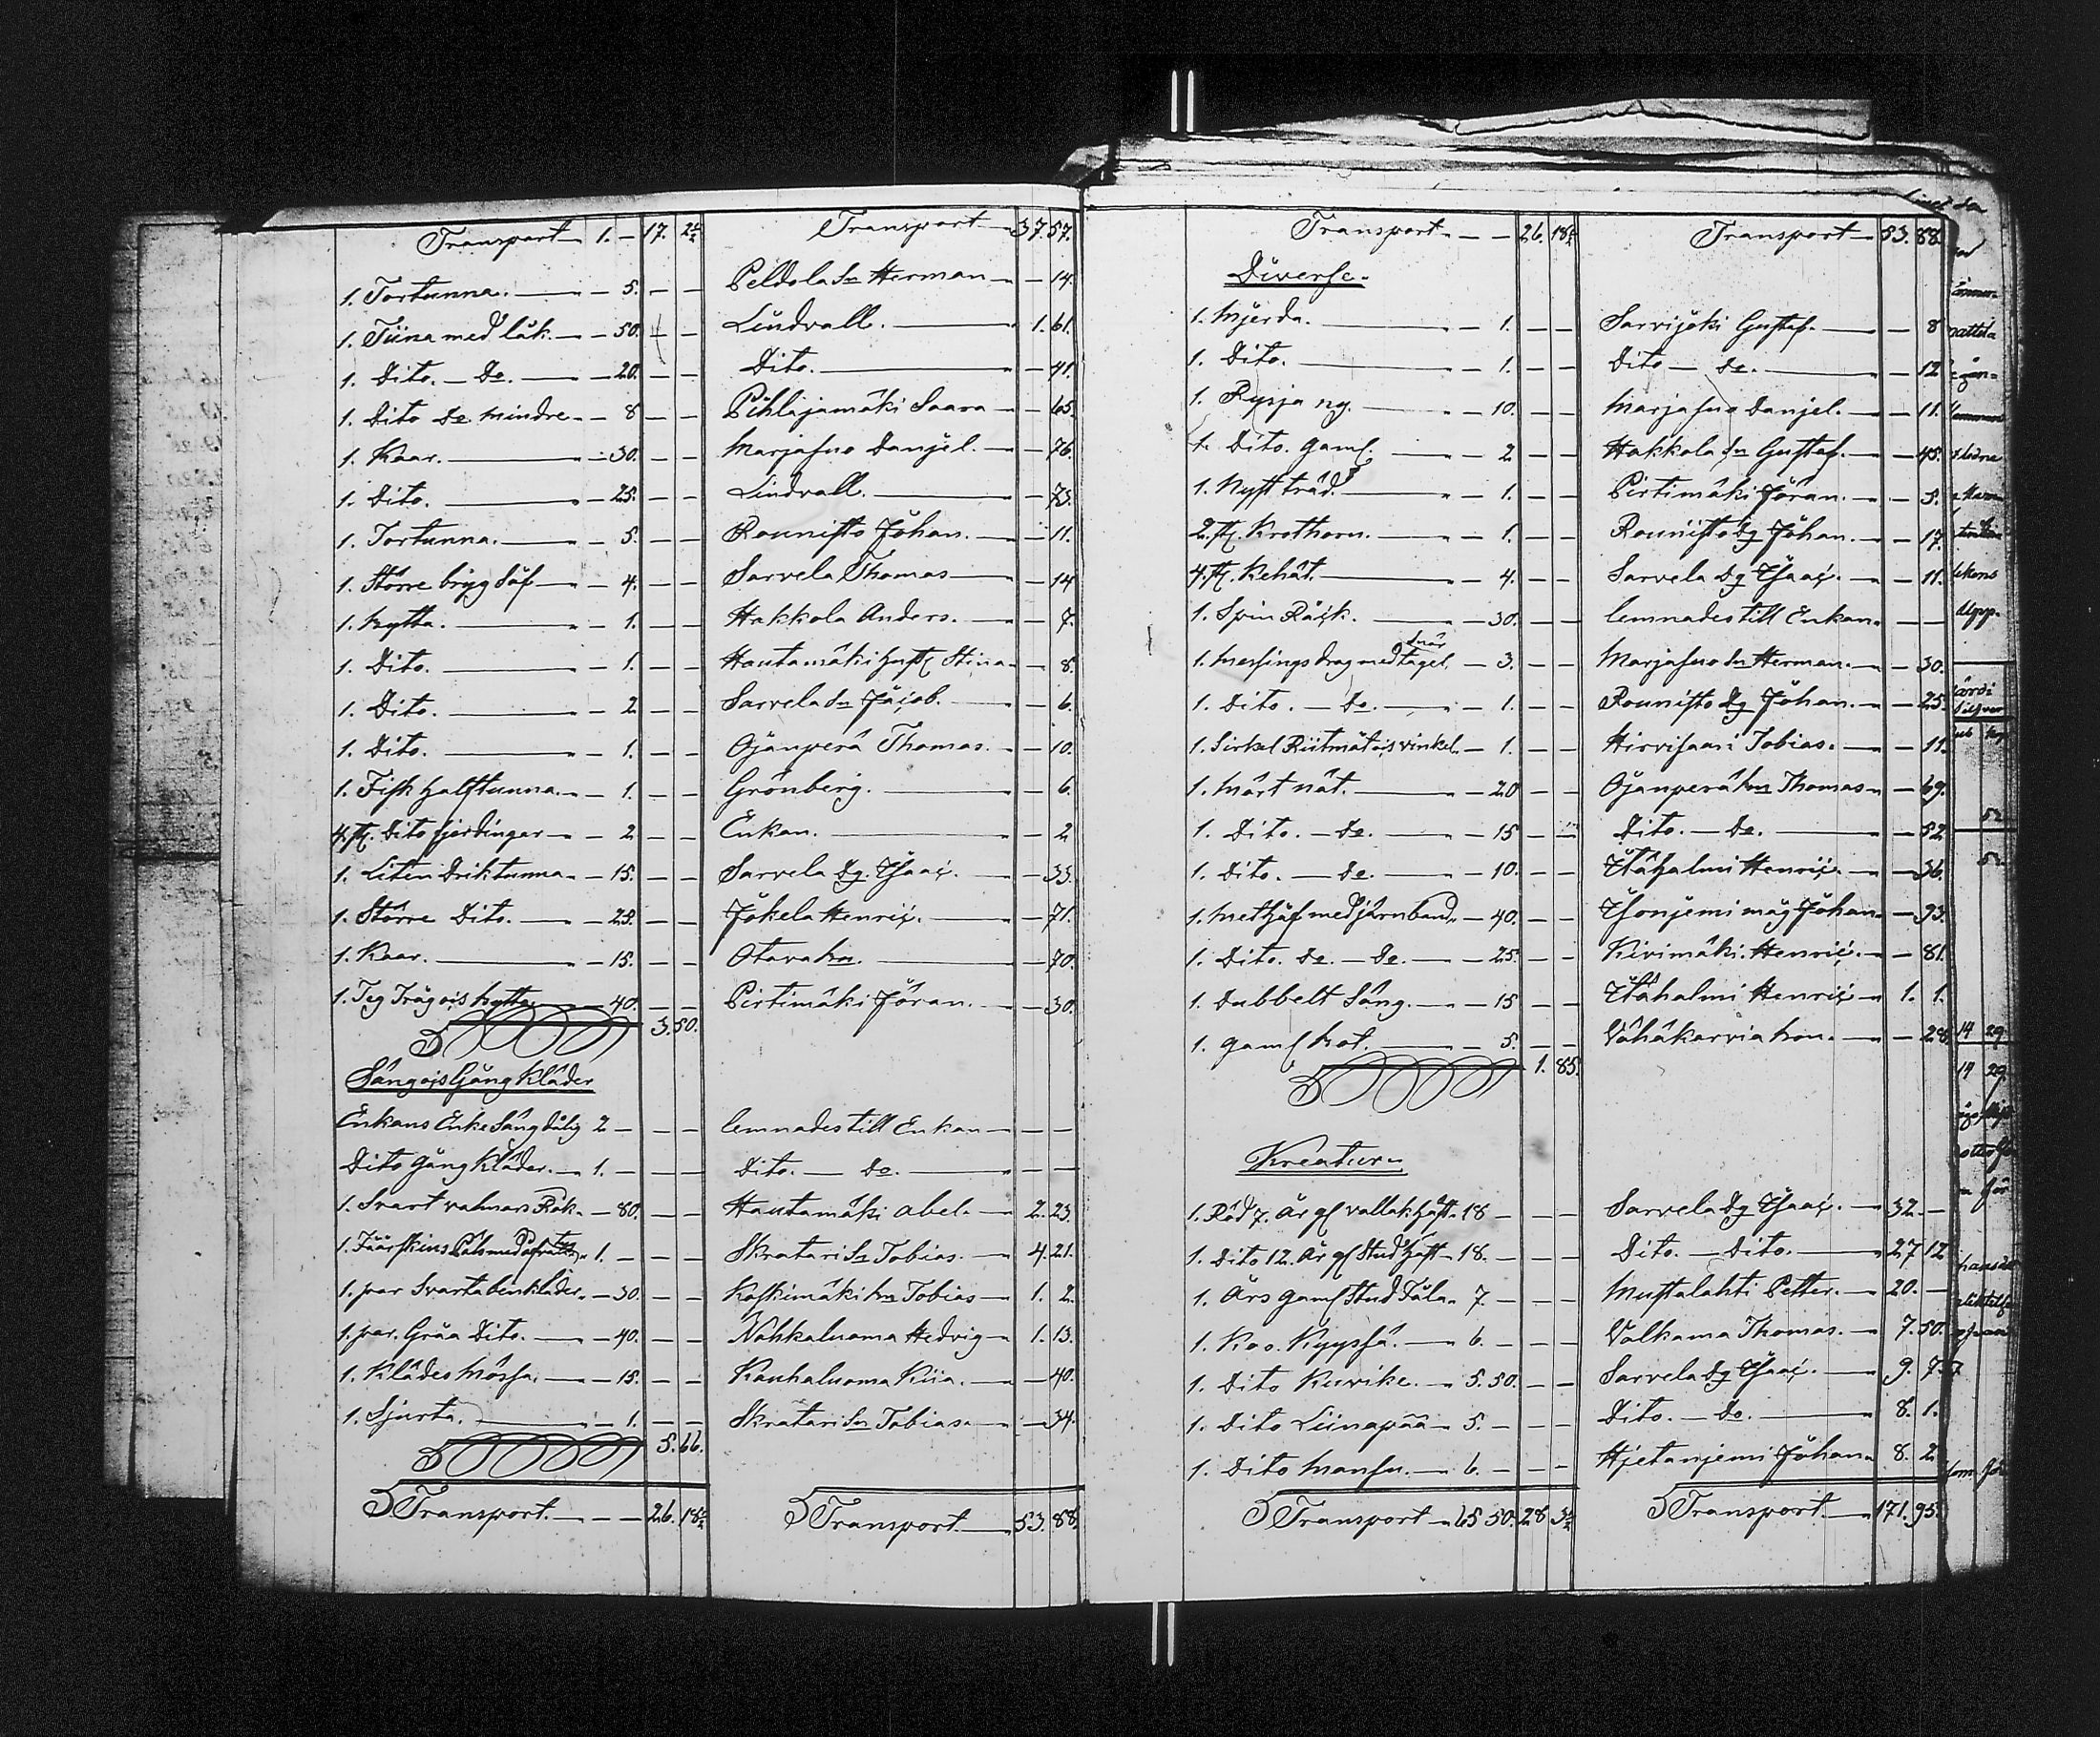 Transport 1. — 17. 2½ Transport 37 57.
1. Tortunna. — 5. — — Peldola Sn Herman — 14.
1. Tiina med låk. — 50. — — Lindvall. 1. 61.
1. Dito. — Do. — 20. — — Dito. — 41.
1. Dito Do mindre — 8 — — Pihlajamäki Saara — 65.
1. Kaar. — 30. — — Marjasuo Danjel. — 76.
1. Dito. — 25. — — Lindvall. — 73.
1. Tortunna. — 5. — — Rounisto Johan. — 11.
1. Större brygg Så — 4. — — Sarvela Thomas — 14
1. bytta. — 1. — — Hakkola Anders. — 7.
1. Dito. — 1. — — Hautamäki Stina — 8.
1. Dito. — 2 — — Sarvela Sn Jacob. — 6.
1. Dito. — 1. — — Ojanperä Thomas. — 10.
1. Fisk halftunna. — 1. — — Grönberg. — 6.
4. st. Dito fjerdingar — 2 — — Enkan. — 2
1. Liten Driktunna — 15. — — Sarvela Dg. Isaac. — 33.
1. Större Dito. — 25. — — Jokela Henric. — 71.
1. Kaar. — 15. — — Otava hn. — 70.
1. Teg Tråg ocs bytta — 40. — — Pirtimäki Jöran. — 30.
3. 50.
Säng ocs Gång kläder
Enkans Enke Säng dålig 2 — — — lemnades till Enkan — —
Dito Gång kläder. — 1. — — — Dito. — Do. — —
1. Svart valmars Rok. — 80. — — Hautamäki Abel. 2. 23.
1. Fäärskins Päls 1. — — — Skratari Sn Tobias. 4. 21.
1. par Svarta benkläder. — 30 — — Koskimäki hn Tobias 1. 2.
1. par. Gråa Dito. — 40. — — Nahkaluoma Hedvig 1. 13.
1. Klädes Mössa. — 15. — — Kauhaluoma Kiia. — 40.
1. Sjurta. — 1. — — Skratari Sn Tobias. — 34.
5. 66.
Transport. — — 26. 18½ Transport. 53. 88.
Transport. — — 26. 18½ Transport 53. 88.
Diverse.
1. Mjerda. — 1. — — Sarvijoki Gustaf. — 8
1. Dito. — 1. — — Dito — Do. — 12
1. Rysja ny. — 10. — — Marjasuo Danjel. — 11.
1. Dito. gaml. — 2 — — Hakkola Sn Gustaf. — 45.
1. Nyst träd. — 1. — — Pirtimäki Jöran. — 5.
2. st. Krothorn. — 1. — — Rounisto Dg Johan. — 17.
4. st. Kehät. — 4. — — Sarvela Dg Isaac. — 11.
1. Spin Råck. — 30. — — lemnades till Enkan. — —
1. Messings drag med tagel snör — 3. — — Marjasuo Sn Herman. — 30.
1. Dito. — Do. — 1. — — Rounisto Dg Johan. — 25.
1. Sirkel Riitmåt ocs vinkel. — 1. — — Hirvisaari Tobias. — 11.
1. Mört nät. — 20 — — Ojanperä hn Thomas — 69.
1. Dito. — Do. — 15 — — Dito. — Do. — 52
1. Dito. — Do. — 10. — — Itähalmi Henric. — 36.
1. med järnband. — 40. — — Isonjemi måg Johan — 93.
1. Dito. Do. — Do. — 25. — — Kivimäki. Henric. — 81.
1. Dubbelt Säng. — 15 — — Itähalmi Henric 1. 1.
1. gaml bot. — 5. — — Vähäkarvia hon. — 28.
1. 85.
Kreatur.
1. Röd 7. År gl vallak häst 18 — — — Sarvela Dg Isaac. 32. —
1. Dito 12. År gl Stud häst 18. — — — Dito. — Dito. 27 12
1. Års gaml Stud Fåla 7. — — — Mustalahti Petter. 20. —
1. Koo. Kyyssä. 6. — — — Valkama Thomas. 7. 50.
1. Dito Kuvike. 5. 50. — — Sarvela Dg Isaac. 9. 7
1. Dito Liinapää 5. — — — Dito. — Do. 8. 1.
1. Dito Mansu. 6. — — — Hjetanjemi Johan 8. 2
Transport 65 50. 28 3½ Transport. 171. 95.